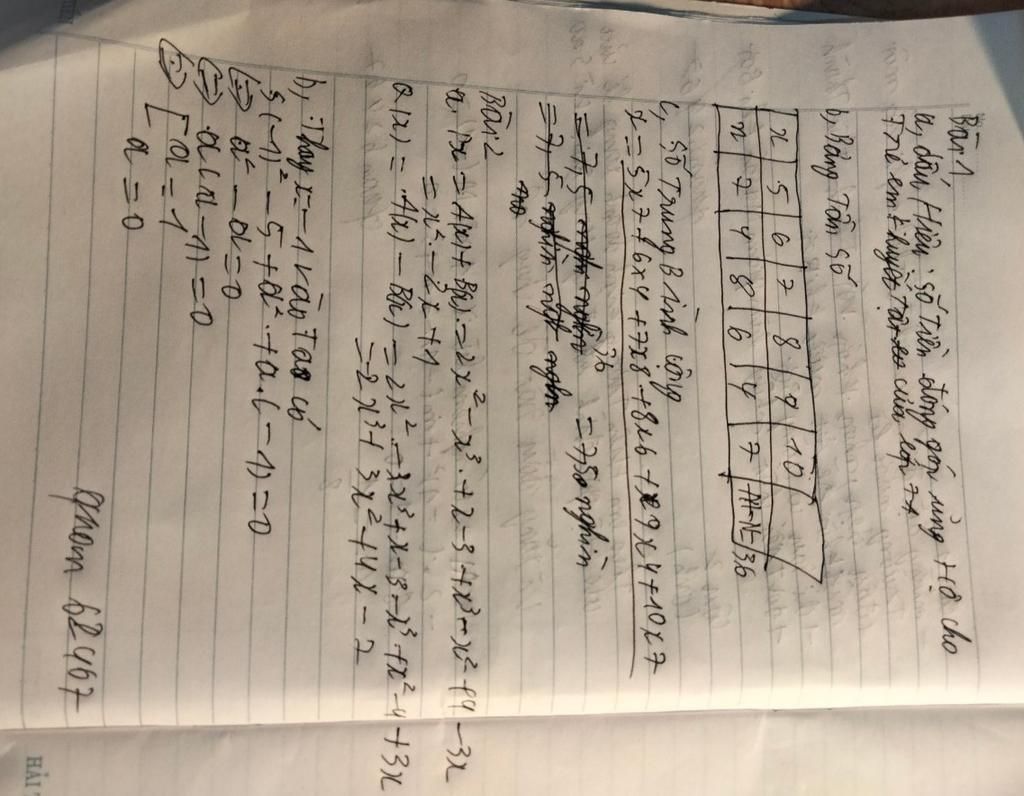 Bài 1
a, dấu Hiệu: Số Tiền đóng góp ủng Hộ cho
Trẻ em khuyết tật của lớp 7A
b, Bảng Tần số
x 5 6 7 8 9 10
n 7 4 8 6 4 7 N=36
c, Số Trung Bình cộng
X = 5x7+6x4+7x8+8x6+9x4+10x7
36
= 7,5 = 750 nghìn
= 7,5
Bài 2
a, = A(x) + B(x) = 2x² - x³ + x - 3 + x³ - x² + 4 - 3x
= x² - 2x + 1
Q(x) = A(x) - B(x) = 2x² - x³ + x - 3 - x³ + x² - 4 + 3x
= -2x³ + 3x² + 4x - 7
b, Thay x = -1 vào Ta có
5(-1)² - 5 + a² + a.(-1) = 0
⇔ a² - a = 0
⇔ a(a - 1) = 0
⇔ [a = 1
a = 0
phom 62467
HẢI